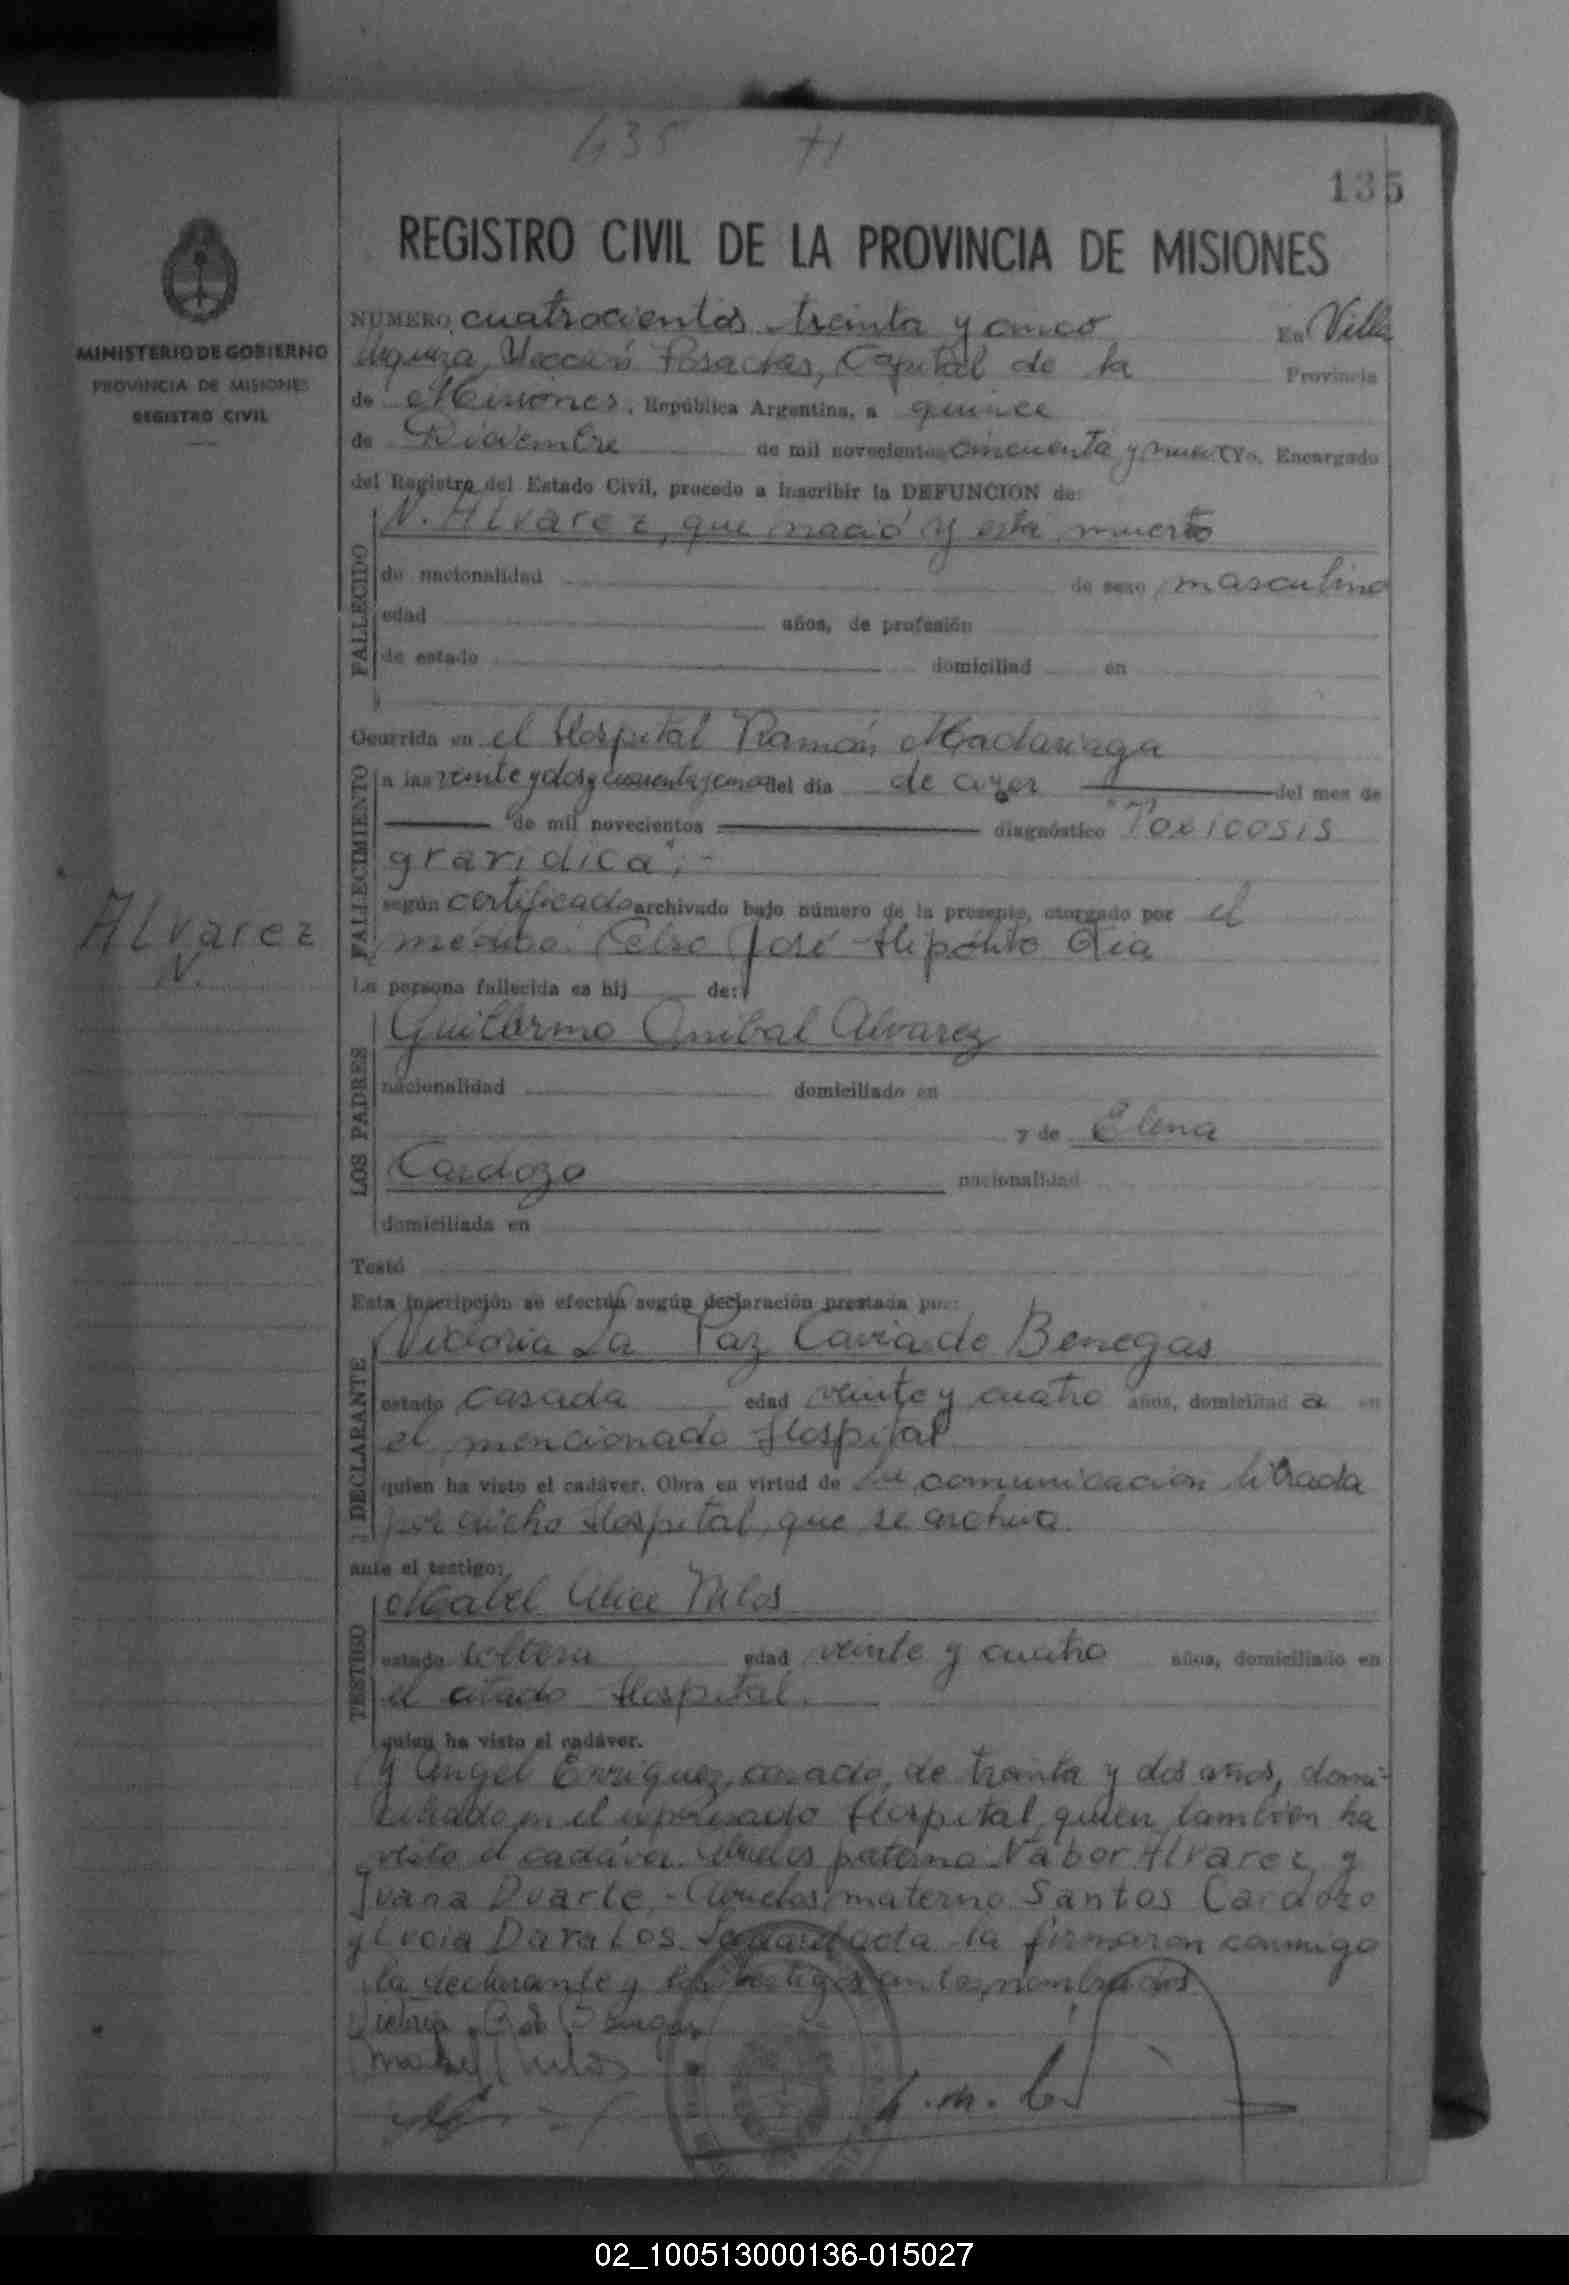 435
135
REGISTRO CIVIL DE LA PROVINCIA DE MISIONES
MINISTERIO DE GOBIERNO
PROVINCIA DE MISIONES
REGISTRO CIVIL
NUMERO cuatrocientos treinta y cinco En Villa
Urquiza, Sección Posadas, Capital de la Provincia
de Misiones, República Argentina, a quince
de Diciembre de mil novecientos cincuenta y nueve Yo, Encargado
del Registro del Estado Civil, procedo a inscribir la DEFUNCION de:
N. Alvarez, que nació y está muerto
FALLECIDO
de nacionalidad de sexo masculino
edad años, de profesión
de estado domiciliad en
Ocurrida en el Hospital Ramón Madariaga
FALLECIMIENTO
a las veinte y dos y cuarenta y cinco del día de ayer del mes de
de mil novecientos diagnóstico "Toxicosis
gravidica";-
según certificado archivado bajo número de la presente, otorgado por el
médico Celso José Hipólito
Alvarez
N.
La persona fallecida es hij de:
LOS PADRES
Guillermo Anibal Alvarez
nacionalidad domiciliado en
y de Elena
Cardozo nacionalidad
domiciliada en
Testó
Esta inscripción se efectúa según declaración prestada por:
DECLARANTE
Victoria La Paz Cavia de Benegas
estado casada edad veinte y cuatro años, domiciliad a en
el mencionado Hospital
quien ha visto el cadáver. Obra en virtud de la comunicación librada
por dicho Hospital, que se archiva.
ante el testigo:
TESTIGO
Mabel Alice
estado soltera edad veinte y cuatro años, domiciliado en
el citado Hospital.
quien ha visto el cadáver.
y Angel Enriquez, casado, de treinta y dos años, domi-
ciliado en el expresado Hospital, quien tambien ha
visto el cadáver. Abuelos paterno Nabor Alvarez y
Juana Duarte.- Abuelos materno Santos Cardozo
y Lucia Leida el acta la firmaron conmigo
la declarante y los testigos antes nombrados.
02_100513000136-015027